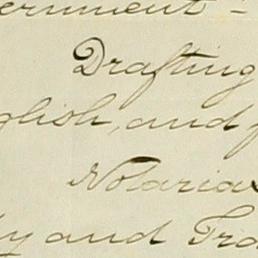 ernment -
Drafting
glish, and f
Notarias
y and Tra